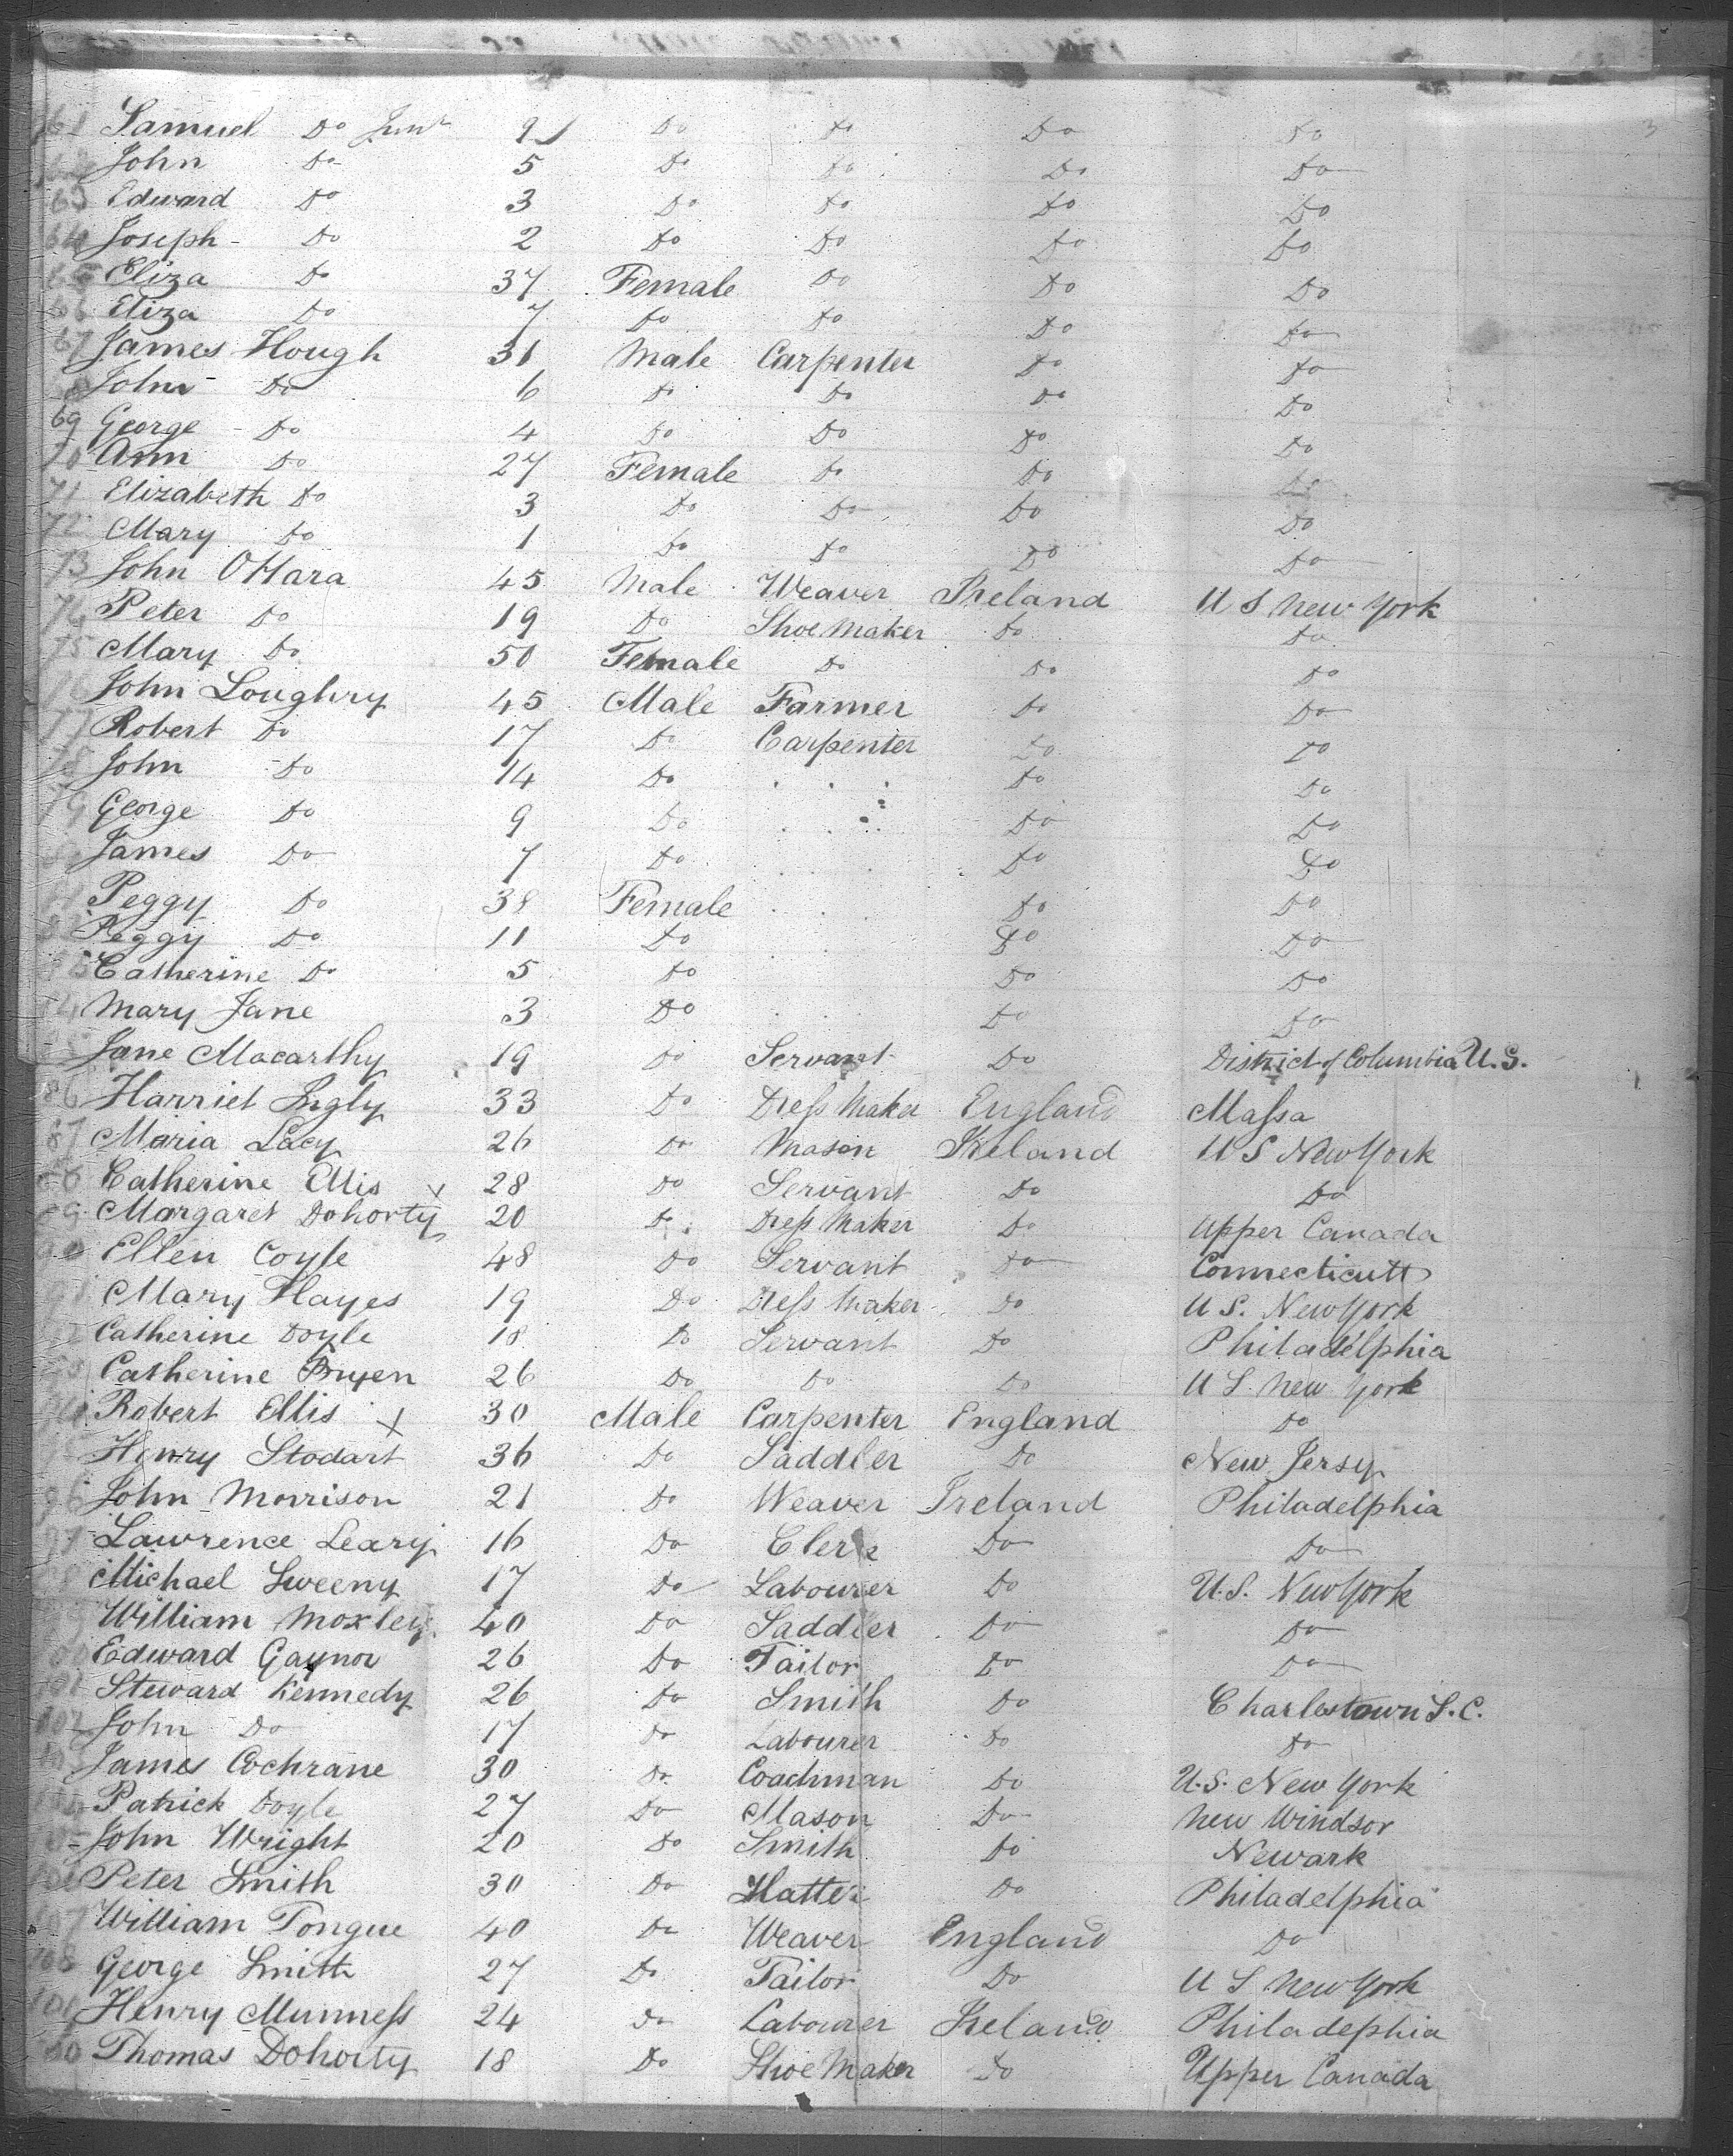 61 Samuel Do Junr 9 Do Do Do Do 3
John Do 5 Do Do Do Do
63 Edward Do 3 Do Do Do Do
64 Joseph Do 2 Do Do Do Do
65 Eliza Do 37 Female Do Do Do
66 Eliza Do 7 Do Do Do Do
67 James Hough 31 Male Carpenter Do Do
John Do 6 Do Do Do Do
69 George Do 4 Do Do Do Do
70 Ann Do 27 Female Do Do Do
71 Elizabeth Do 3 Do Do Do Do
72 Mary Do 1 Do Do Do Do
73 John OHara 45 Male Weaver Ireland U S New York
74 Peter Do 19 Do Shoe Maker Do Do
75 Mary Do 50 Female Do Do Do
76 John Loughry 45 Male Farmer Do Do
77 Robert Do 17 Do Carpenter Do Do
78 John Do 14 Do Do Do
79 George Do 9 Do Do Do
James Do 7 Do Do Do
Peggy Do 38 Female Do Do
Peggy Do 11 Do Do Do
Catherine Do 5 Do Do Do
84 Mary Jane 3 Do Do Do
Jane Macarthy 19 Do Servant Do District of Columbia U.S.
86 Harriet Ingly 33 Do Dress Maker England Massa
87 Maria Lacy 26 Do Mason Ireland U S New York
88 Catherine Ellis x 28 Do Servant Do Do
89 Margaret Dohorty 20 Do Dress Maker Do Upper Canada
90 Ellen Coyle 48 Do Servant Do Connecticutt
91 Mary Hayes 19 Do Dress Maker Do U S. New York
Catherine Doyle 18 Do Servant Do Philadelphia
Catherine Bryen 26 Do Do Do U S New York
Robert Ellis x 30 Male Carpenter England Do
Henry Stodart 36 Do Saddler Do New Jersy
96 John Morrison 21 Do Weaver Ireland Philadelphia
97 Lawrence Leary 16 Do Clerk Do Do
Michael Sweeny 17 Do Labourer Do U.S. New York
William Moxley 40 Do Saddler Do Do
100 Edward Gaynor 26 Do Tailor Do Do
101 Steward Kennedy 26 Do Smith Do Charlestown S.C.
102 John Do 17 Do Labourer Do Do
103 James Cochrane 30 Do Coachman Do U.S. New York
104 Patrick Doyle 27 Do Mason Do New Windsor
105 John Wright 20 Do Smith Do Newark
106 Peter Smith 30 Do Hatter Do Philadelphia
107 William Tongue 40 Do Weaver England Do
108 George Smith 27 Do Tailor Do U S New York
109 Henry Munness 24 Do Labourer Ireland Philadephia
Thomas Dohorty 18 Do Shoe Maker Do Upper Canada